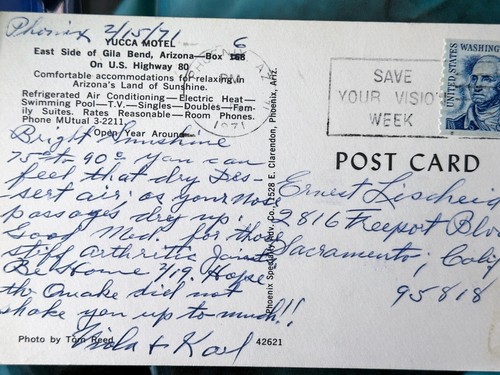 Phoenix 2/15/71
YUCCA MOTEL
East Side of Gila Bend, Arizona—Box 6
On U.S. Highway 80
Comfortable accommodations for relaxing in
Arizona's Land of Sunshine.
Refrigerated Air Conditioning—Electric Heat—
Swimming Pool—T.V.—Singles—Doubles—Fam-
ily Suites. Rates Reasonable—Room Phones.
Phone MUtual 3-2211.
Open Year Around
Bright Sunshine
75° to 90° you can
feel that dry Des-
sert air. as your nose
passages dry up.
Good Med. for those
stiff arthritic Joints
Be Home 2/19. Hope
the Quake did not
shake you up to much!!
Viola + Karl
Photo by Tom Reed
42621
Phoenix Specialty Adv. Co., 11528 E. Clarendon, Phoenix, Ariz.
PM
1971
SAVE
YOUR VISION
WEEK
UNITED STATES
Washington
POST CARD
Ernest Lischeid
2816 Freeport Blv
Sacramento, Calif
95818